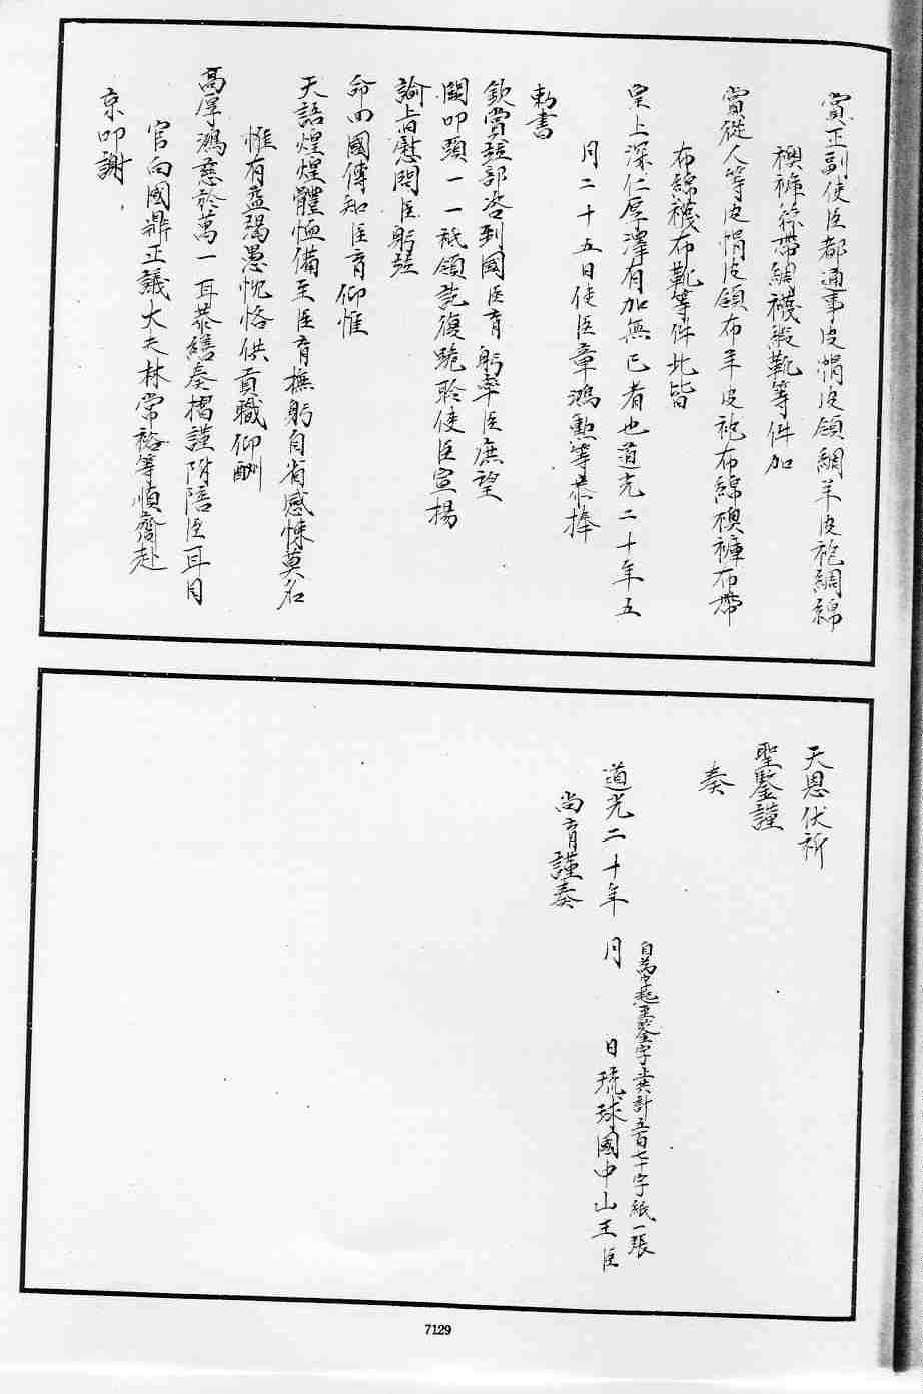 賞正副使臣都通事皮帽皮領綢羊皮袍綢綿
襖褲絲帶綢襪緞靴等件加
賞從人等皮帽皮領布羊皮袍布綿襖褲布帶
布綿襪布靴等件此皆
皇上深仁厚澤有加無已者也道光二十年五
月二十五日使臣章鴻勳等恭捧
勅書
欽賞並部咨到國臣育躬率臣庶望
闕叩頭一一祗領訖復跪聆使臣宣揚
諭旨慰問臣躬並
命回國傳知臣育仰惟
天語煌煌體恤備至臣育撫躬自省感悚莫名
惟有益竭愚忱恪供貢職仰酬
高厚鴻慈於萬一耳恭繕奏摺謹附陪臣耳目
官向國鼎正議大夫林常裕等慎齎赴
京叩謝
天恩伏祈
聖鑒謹
奏
自為字起至鑒字止共計五百七十字紙一張
道光二十年 月 日琉球國中山王臣
尚育謹奏
7129